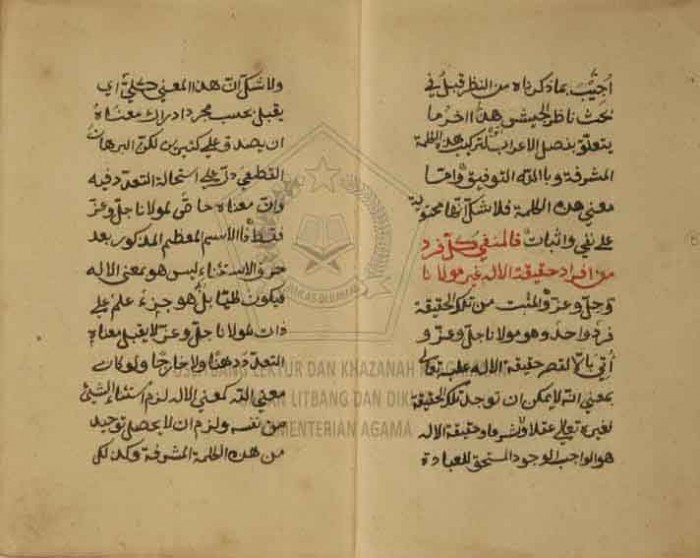 أجيب بما ذكرناه من النظر قبل في
بحث ناظر الجيش هذا اخر ما
يتعلق بفصل الاعراب لتركيب هذه الكلمة
المشرفة وبالله التوفيق واما
معنى هذه الكلمة فلا شك انها محتوية
على نفي واثبات فالمنفي كل فرد
من افراد حقيقة الاله غير مولانا
جل وعز والمثبت من تلك الحقيقة
فرد واحد وهو مولانا جل وعز و
أتى بالا لقصر حقيقة الاله عليه تعالى
بمعنى انه لا يمكن ان توجد تلك الحقيقة
لغيره تعالى عقلا ولا شرعا وحقيقة الاله
هو الواجب الوجود المستحق للعبادة
ولا شك ان هذا المعنى كلي اي
يقبل بحسب مجرد ادراك معناه
ان يصدق على كثيرين لكن البرهان
القطعي دل على استحالة التعدد فيه
وان معناه خاص لمولانا جل وعز
فقط فالاسم المعظم المذكور بعد
حرف الاستثناء ليس هو بمعنى الاله
فيكون كليا بل هو جزءي علم على
ذات مولانا جل وعز لا يقبل معناه
التعدد ذهنا ولا خارجا ولو كان
معنى الله كمعنى الاله لزم استثناء الشئ
من نفسه ولزم ان لا يحصل توحيد
من هذه الكلمة المشرفة وكذلك
PUSLITBANG LEKTUR DAN KHAZANAH KEAGAMAAN
BADAN LITBANG DAN DIKLAT
KEMENTERIAN AGAMA